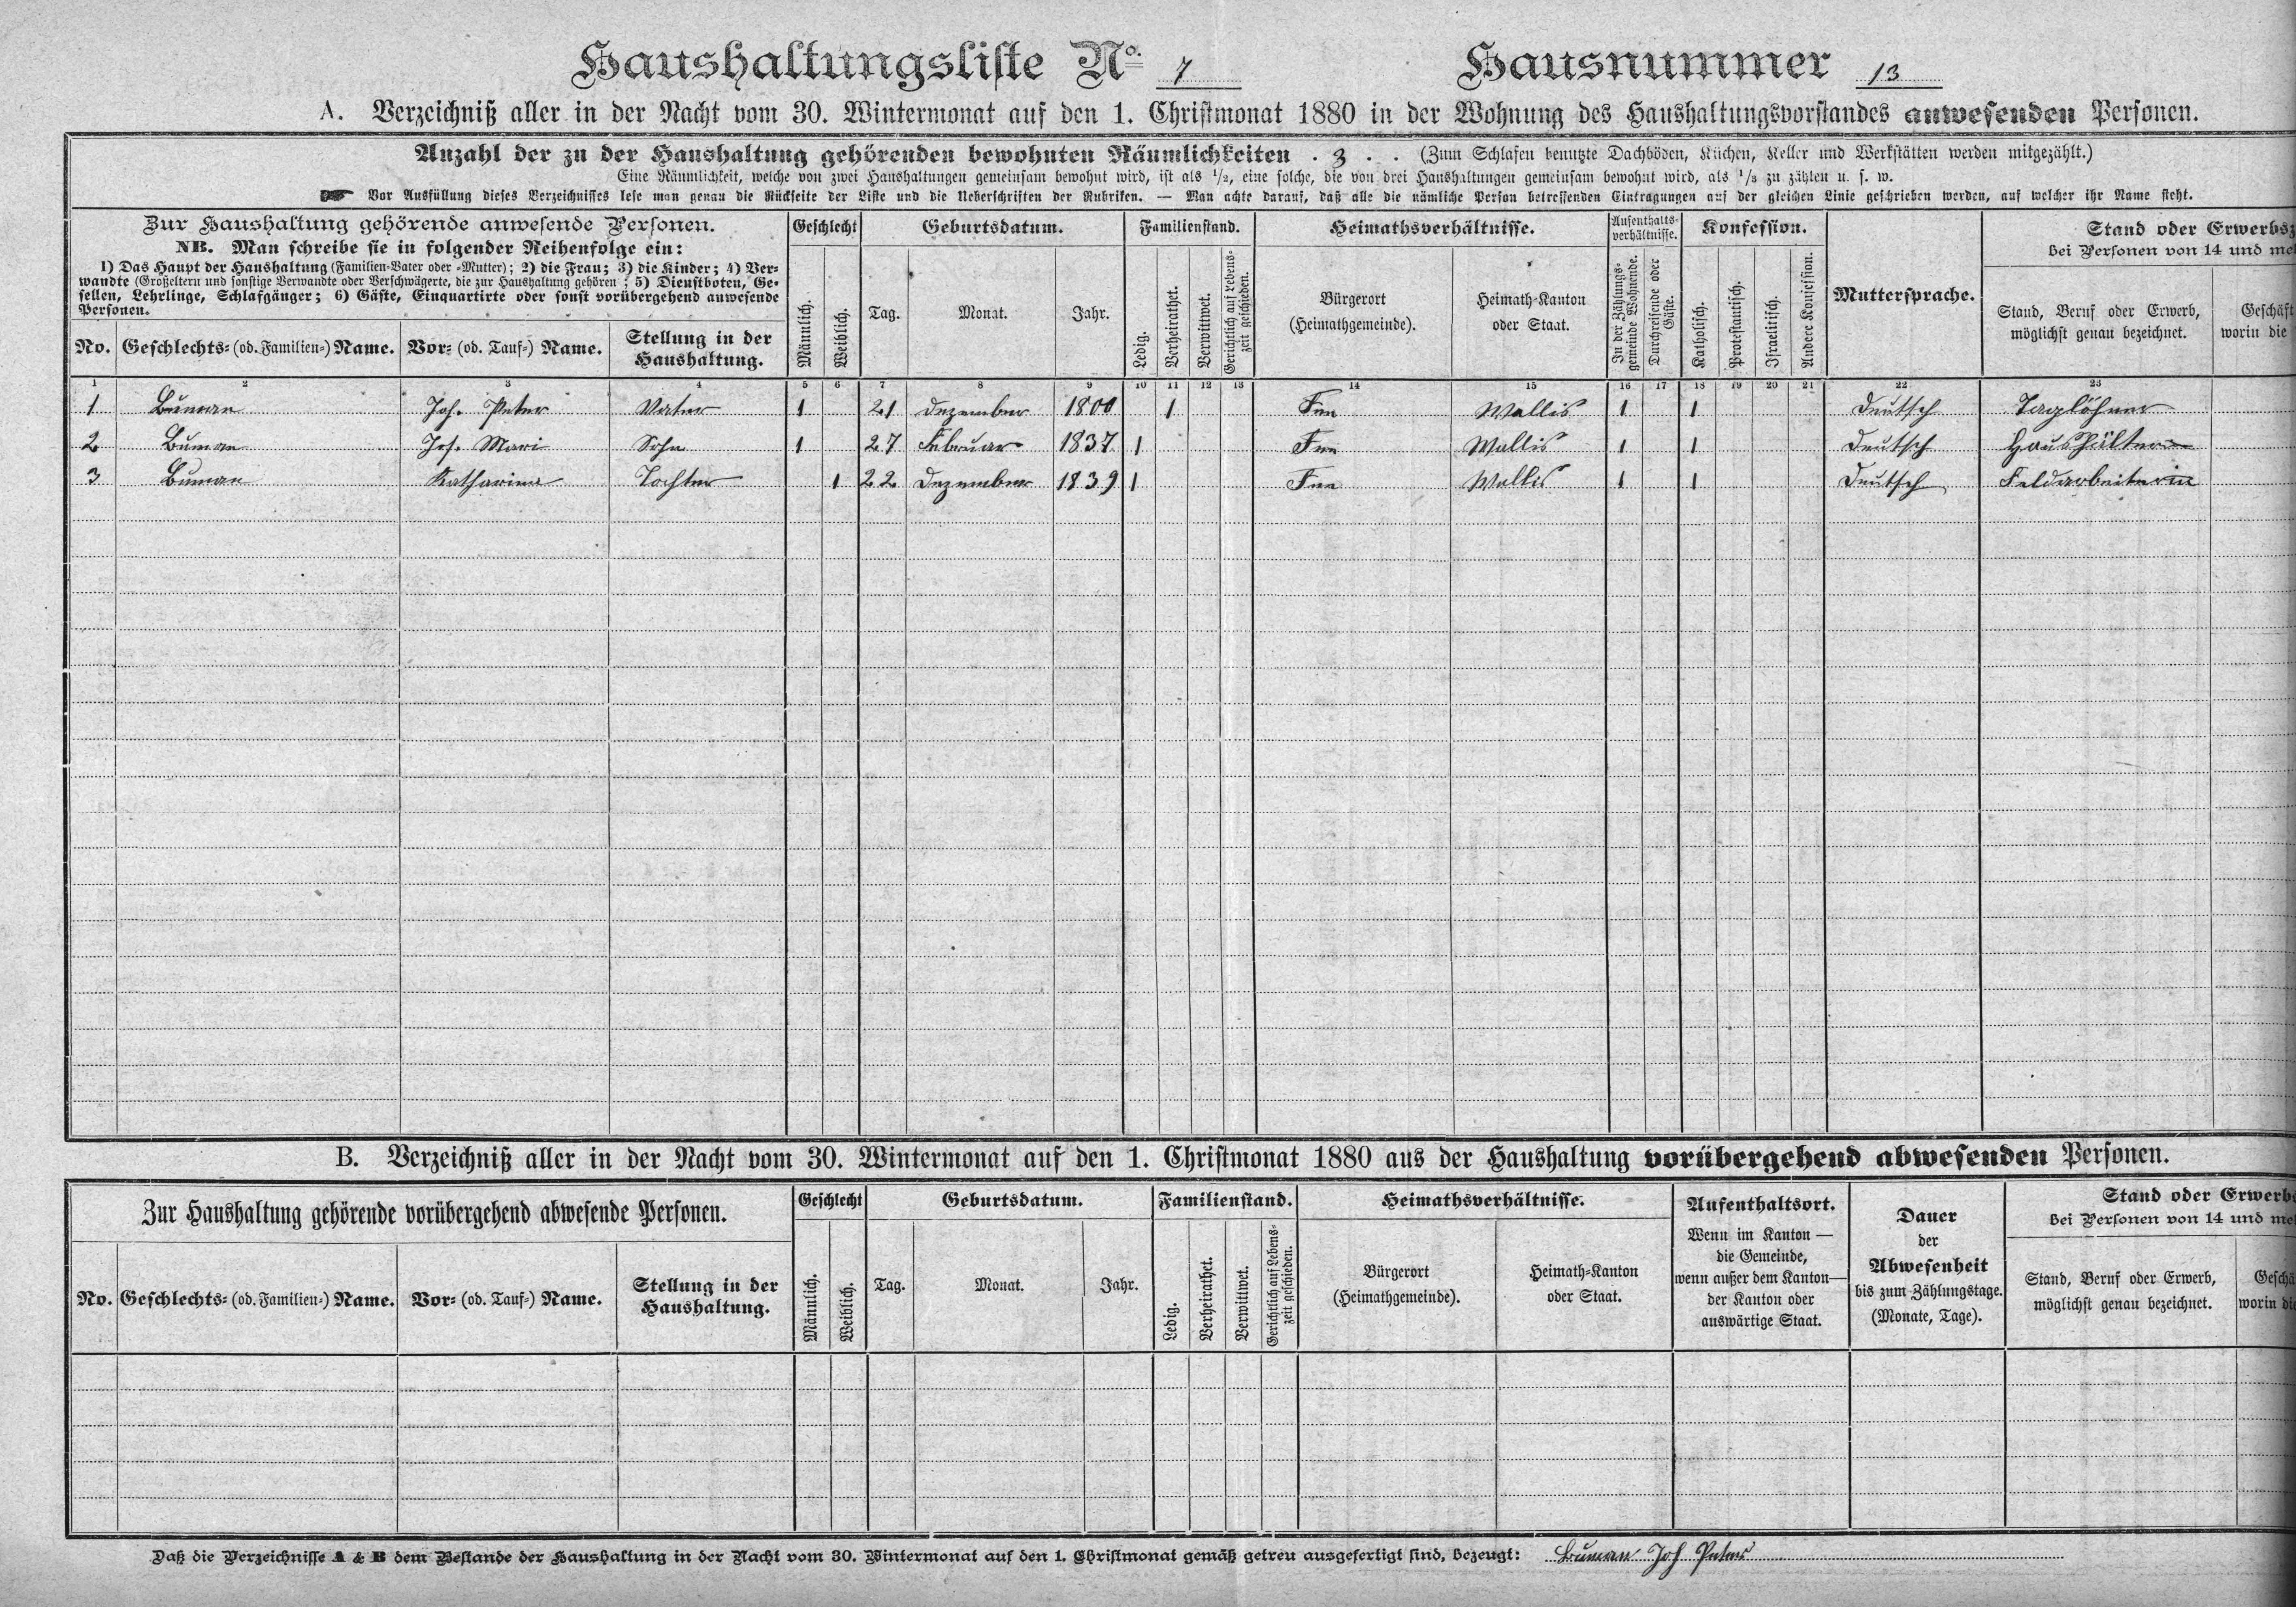 Haushaltungsliste No. 7 Hausnummer 13
A. Verzeichniß aller in der Nacht vom 30. Wintermonat auf den 1. Christmonat 1880 in der Wohnung des Haushaltungsvorstandes anwesenden Personen.
Anzahl der zu der Haushaltung gehörenden bewohnten Räumlichkeiten . 3 . . (Zum Schlafen benutzte Dachböden, Küchen, Keller und Werkstätten werden mitgezählt.)
Eine Räumlichkeit, welche von zwei Haushaltungen gemeinsam bewohnt wird, ist als 1/2, eine solche, die von drei Haushaltungen gemeinsam bewohnt wird, als 1/3 zu zählen u. s. w.
Vor Ausfüllung dieses Verzeichnisses lese man genau die Rückseite der Liste und die Ueberschriften der Rubriken. — Man achte darauf, daß alle die nämliche Person betreffenden Eintragungen auf der gleichen Linie geschrieben werden, auf welcher ihr Name steht.
Zur Haushaltung gehörende anwesende Personen.
NB. Man schreibe sie in folgender Reihenfolge ein:
1) Das Haupt der Haushaltung (Familien-Vater oder -Mutter); 2) die Frau; 3) die Kinder; 4) Ver-
wandte (Großeltern und sonstige Verwandte oder Verschwägerte, die zur Haushaltung gehören); 5) Dienstboten, Ge-
sellen, Lehrlinge, Schlafgänger; 6) Gäste, Einquartirte oder sonst vorübergehend anwesende
Personen.
No. Geschlechts- (od. Familien-) Name. Vor- (od. Tauf-) Name.
Stellung in der
Haushaltung.
Geschlecht
Männlich.
Weiblich.
Geburtsdatum.
Tag. Monat. Jahr.
Familienstand.
Ledig.
Verheirathet.
Verwittwet.
Gerichtlich auf Lebens-
zeit geschieden.
Heimathsverhältnisse.
Bürgerort
(Heimathgemeinde).
Heimath-Kanton
oder Staat.
Aufenthalts-
verhältnisse.
In der Zählungs-
gemeinde Wohnende.
Durchreisende oder
Gäste.
Konfession.
Katholisch.
Protestantisch.
Israelitisch.
Andere Konfession.
Muttersprache.
Stand oder Erwerbsz
Bei Personen von 14 und me
Stand, Beruf oder Erwerb,
möglichst genau bezeichnet.
Geschäft
worin die
1 2 3 4 5 6 7 8 9 10 11 12 13 14 15 16 17 18 19 20 21 22 23
1 Buman Joh. Peter Vater 1 21 Dezember 1800 1 Fee Wallis 1 1 Deutsch Taglöhner
2 Buman Jos. Mari Sohn 1 27 Februar 1837 1 Fee Wallis 1 1 Deutsch Haushälter
3 Buman Katharina Tochter 1 22 Dezember 1839 1 Fee Wallis 1 1 Deutsch Feldarbeiterin
B. Verzeichniß aller in der Nacht vom 30. Wintermonat auf den 1. Christmonat 1880 aus der Haushaltung vorübergehend abwesenden Personen.
Zur Haushaltung gehörende vorübergehend abwesende Personen.
No. Geschlechts- (od. Familien-) Name. Vor- (od. Tauf-) Name.
Stellung in der
Haushaltung.
Geschlecht
Männlich.
Weiblich.
Geburtsdatum.
Tag. Monat. Jahr.
Familienstand.
Ledig.
Verheirathet.
Verwittwet.
Gerichtlich auf Lebens-
zeit geschieden.
Heimathsverhältnisse.
Bürgerort
(Heimathgemeinde).
Heimath-Kanton
oder Staat.
Aufenthaltsort.
Wenn im Kanton —
die Gemeinde,
wenn außer dem Kanton—
der Kanton oder
auswärtige Staat.
Dauer
der
Abwesenheit
bis zum Zählungstage.
(Monate, Tage).
Stand oder Erwerb
Bei Personen von 14 und me
Stand, Beruf oder Erwerb,
möglichst genau bezeichnet.
Geschä
worin die
Daß die Verzeichnisse A & B dem Bestande der Haushaltung in der Nacht vom 30. Wintermonat auf den 1. Christmonat gemäß getreu ausgefertigt sind, bezeugt: Buman Joh Peter